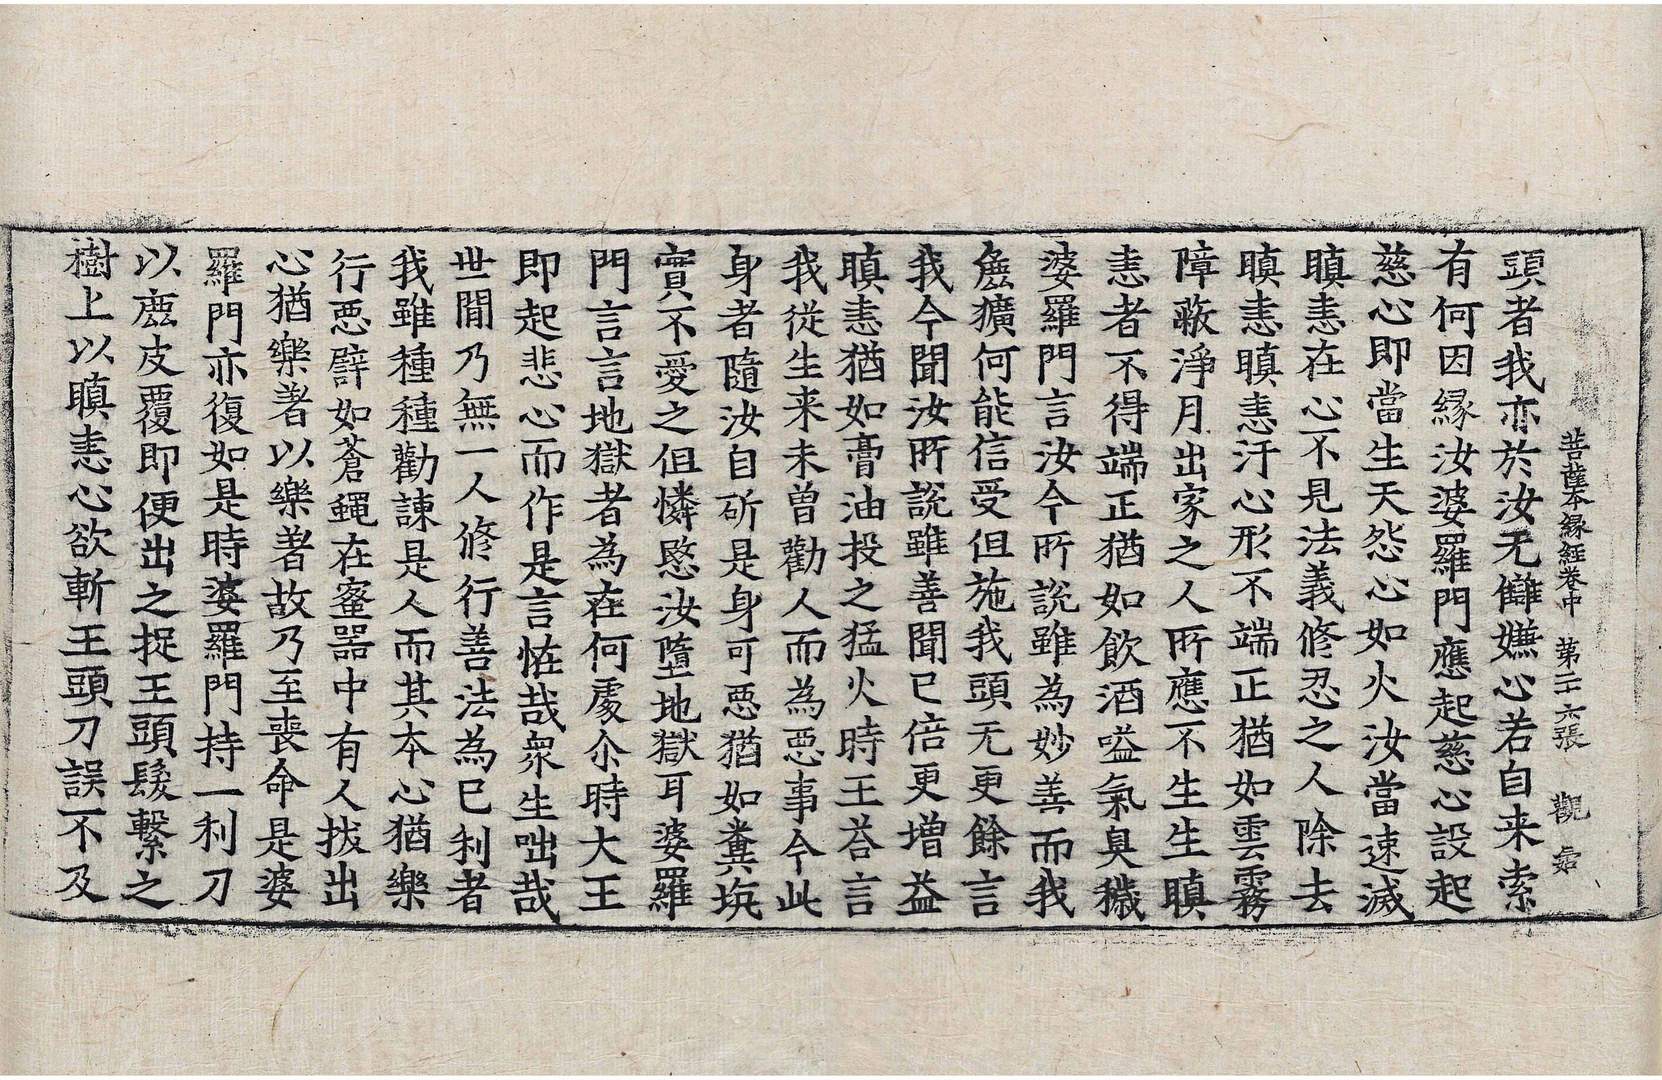 菩薩本緣經卷中 第二十六張 觀
頭者我亦於汝无讎嫌心若自来索
有何因縁汝婆羅門應起慈心設起
慈心即當生天怨心如火汝當速滅
瞋恚在心不見法義修忍之人除去
瞋恚瞋恚汙心形不端正猶如雲霧
障蔽淨月出家之人所應不生生瞋
恚者不得端正猶如飲酒嗌氣臭穢
婆羅門言汝今所說雖為妙善而我
麁獷何能信受但施我頭无更餘言
我今聞汝所說雖善聞已倍更增益
瞋恚猶如膏油投之猛火時王荅言
我從生来未曾勸人而為惡事今此
身者隨汝自斫是身可惡猶如糞埦
實不愛之但憐愍汝墮地獄耳婆羅
門言言地獄者為在何處尒時大王
即起悲心而作是言恠哉衆生咄哉
世間乃無一人修行善法為已利者
我雖種種勸諫是人而其本心猶樂
行惡譬如蒼蠅在蜜器中有人拔出
心猶樂著以樂著故乃至喪命是婆
羅門亦復如是時婆羅門持一利刀
以麁皮覆即便出之捉王頭髮繫之
樹上以瞋恚心欲斬王頭刀誤不及